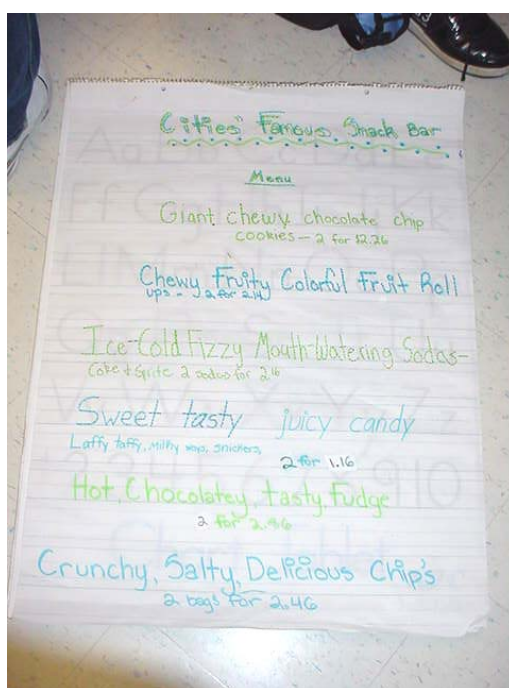 Cities' Famous Snack Bar
Menu
Giant chewy chocolate chip
cookies - 2 for $2.26
Chewy Fruity Colorful Fruit Roll
ups - 2 for
Ice-Cold Fizzy Mouth-Watering Sodas-
Coke & Sprite 2 sodas for 2.16
Sweet tasty juicy candy
Laffy taffy, Milky ways, Snickers,
2 for 1.16
Hot, Chocolatey, tasty, Fudge
2 for 2.86
Crunchy, Salty, Delicious Chip's
2 bags for 2.46